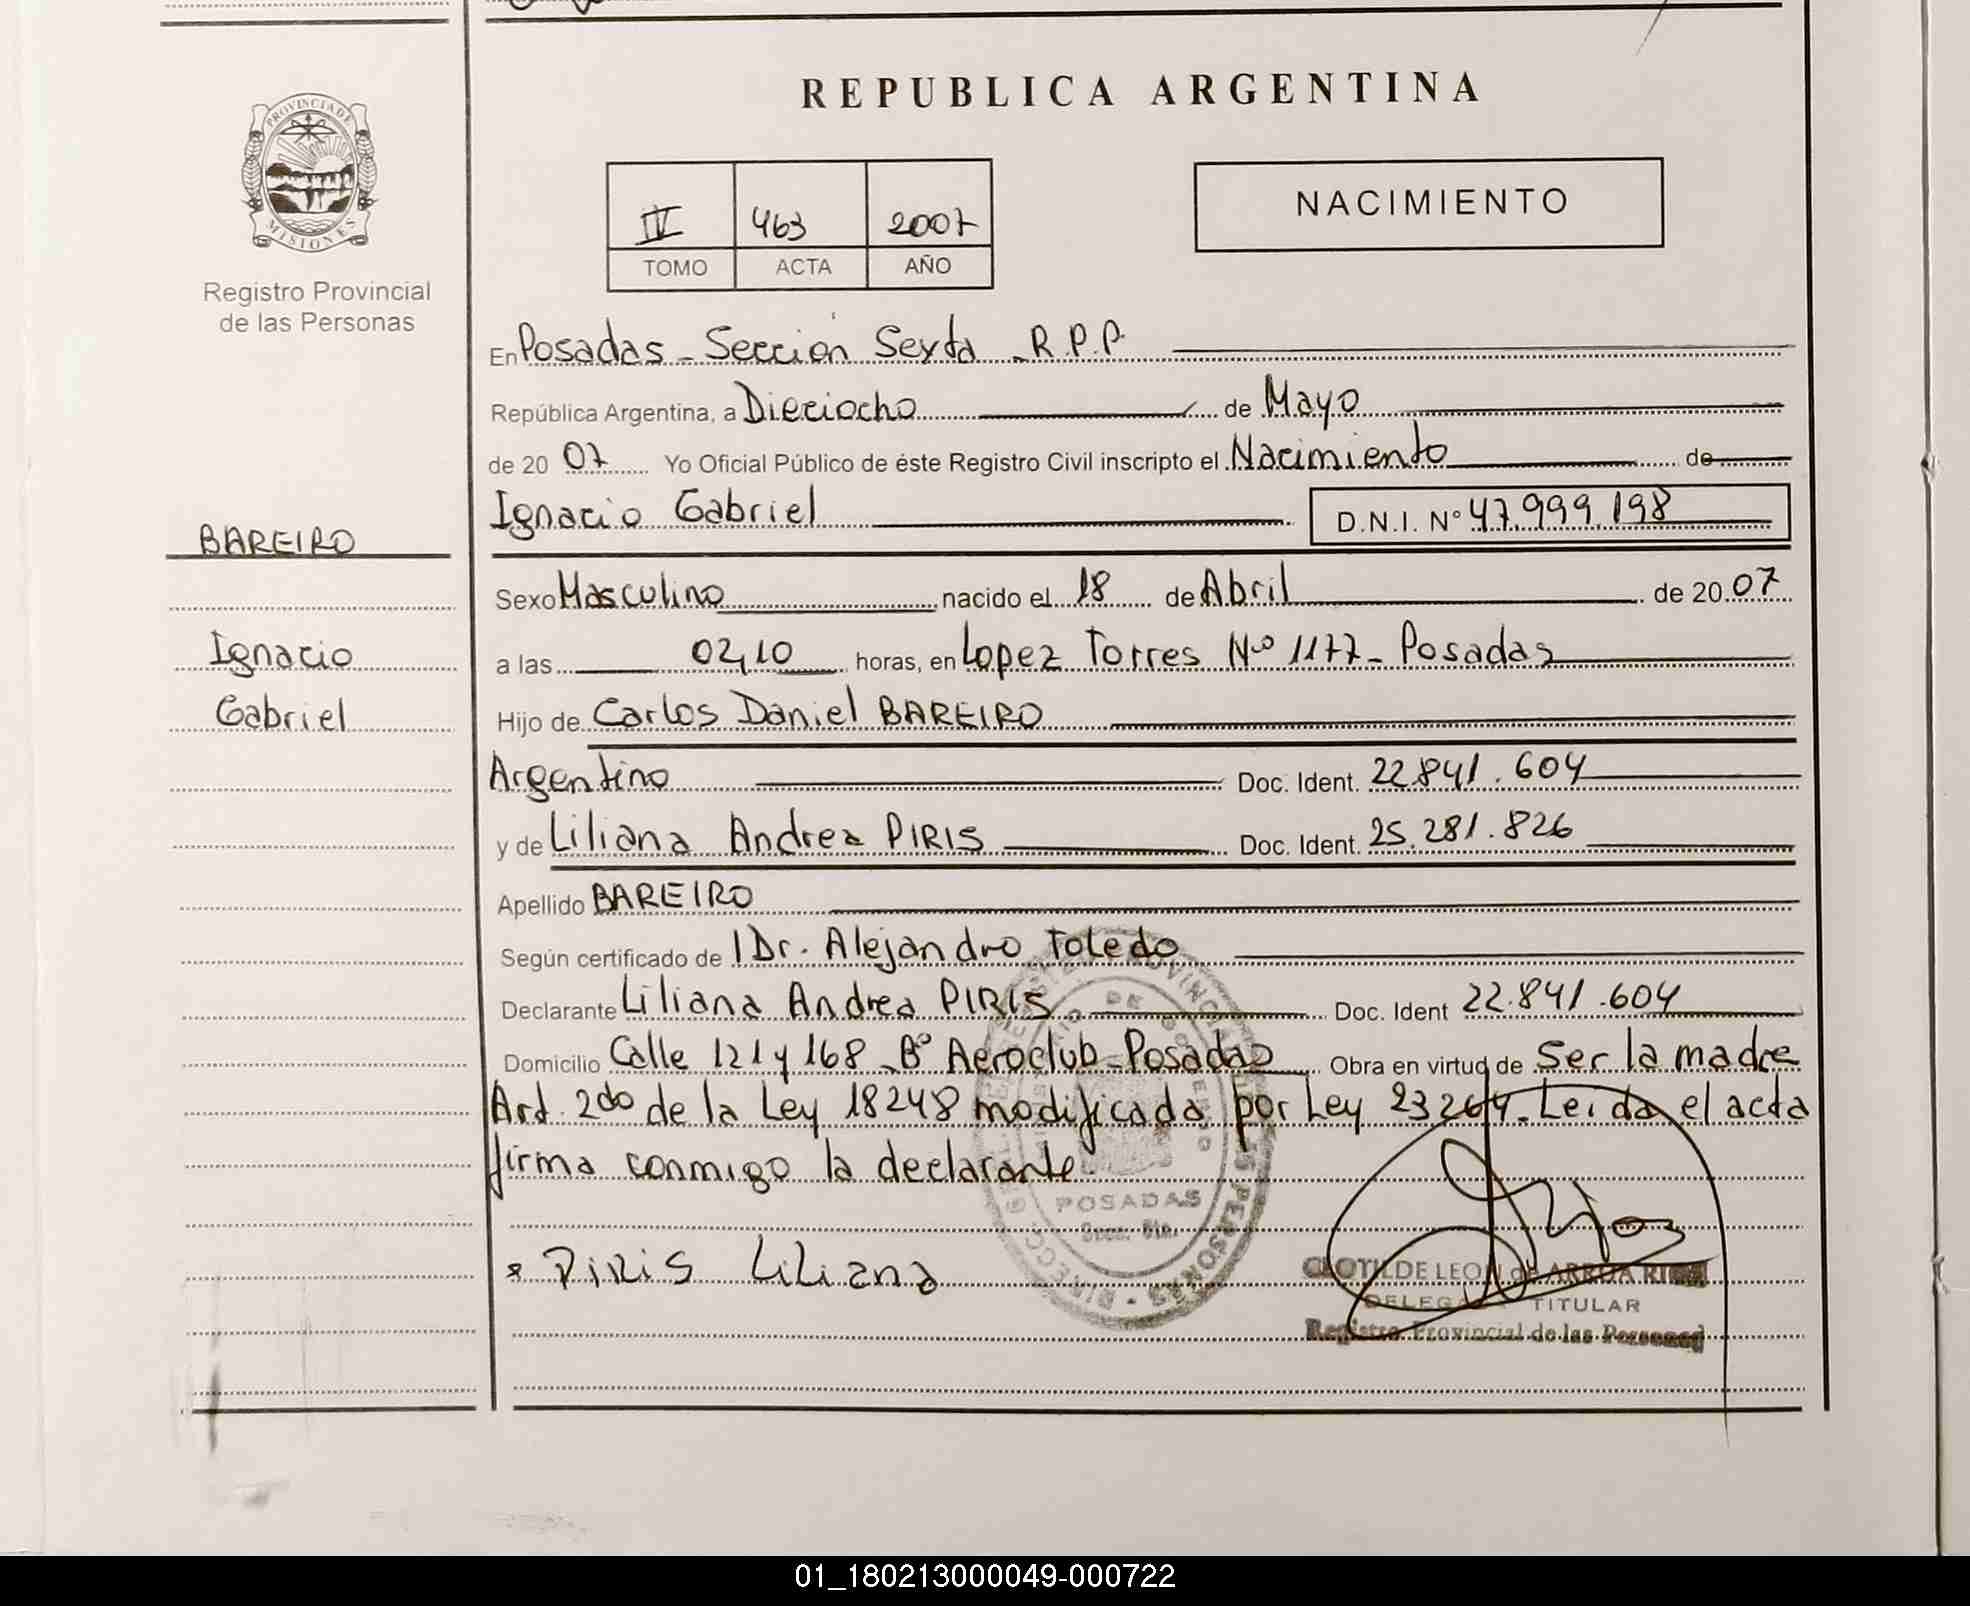 REPUBLICA ARGENTINA
PROVINCIA DE
MISIONES
Registro Provincial
de las Personas
IV 463 2007
TOMO ACTA AÑO
NACIMIENTO
En Posadas - Sección Sexta - R.P.P.
República Argentina, a Dieciocho de Mayo
de 20 07 Yo Oficial Público de éste Registro Civil inscripto el Nacimiento de
Ignacio Gabriel D.N.I. N° 47.999.198
BAREIRO
Sexo Masculino nacido el 18 de Abril de 20 07
Ignacio
a las 02,10 horas, en Lopez Torres Nº 1177 - Posadas
Gabriel
Hijo de Carlos Daniel BAREIRO
Argentino Doc. Ident. 22.841.604
y de Liliana Andrea PIRIS Doc. Ident. 25.281.826
Apellido BAREIRO
Según certificado de Dr. Alejandro Toledo
Declarante Liliana Andrea PIRIS Doc. Ident 22.841.604
Domicilio Calle 121 y 168 - Bº Aeroclub - Posadas Obra en virtud de Ser la madre
Art. 2do de la Ley 18248 modificada por Ley 23264. Leida el acta
firma conmigo la declarante.
POSADAS
PIRIS LiLiana
CLOTILDE LEON de ARRUA
DELEGADA TITULAR
Registro Provincial de las Personas
01_180213000049-000722